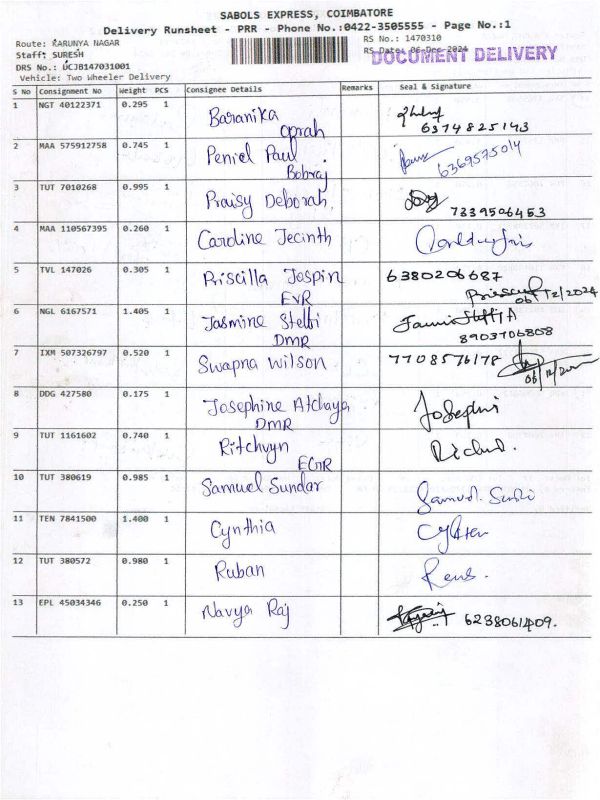 SABOLS EXPRESS, COIMBATORE
Delivery Runsheet - PRR - Phone No.:0422-3505555 - Page No.:1
Route: KARUNYA NAGAR
RS No.: 1470310
Staff: SURESH
RS Date: 06-Dec-2024
DOCUMENT DELIVERY
DRS No.: UCJB147031001
Vehicle: Two Wheeler Delivery
S No Consignment No Weight PCS Consignee Details Remarks Seal & Signature
1 NGT 40122371 0.295 1 Baranika
Oprah
6374825143
2 MAA 575912758 0.745 1 Peniel Paul
Bobraj
6369575014
3 TUT 7010268 0.995 1 Praisy Deborah.
7339506453
4 MAA 110567395 0.260 1 Caroline Jecinth
5 TVL 147026 0.305 1 Priscilla Jaspin 6380206687
EVR
06/12/2024
6 NGL 6167571 1.405 1 Jasmine Stelbi
DMR 8903706808
7 IXM 507326797 0.520 1 Swapna Wilson 7708576178
8 DDG 427580 0.175 1 Josephine Atchaya
DMR
9 TUT 1161602 0.740 1 Ritchvyn
10 TUT 380619 0.985 1 Samuel Sundar
11 TEN 7841500 1.400 1 Cynthia
12 TUT 380572 0.980 1 Ruban
13 EPL 45034346 0.250 1 Navya Raj
6238061409.